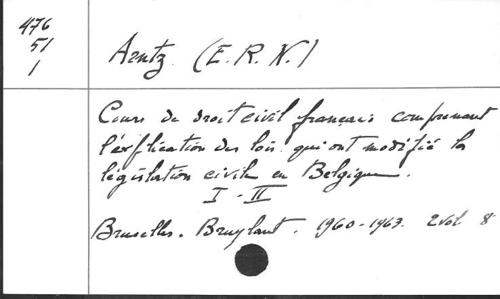 476
51
1
Arntz. (E. R. N.)
Cours de droit civil français comprenant
l'explication des lois qui ont modifié la
législation civile en Belgique.
I - II
Bruxelles. Bruylant. 1960-1963. 2 vol 8